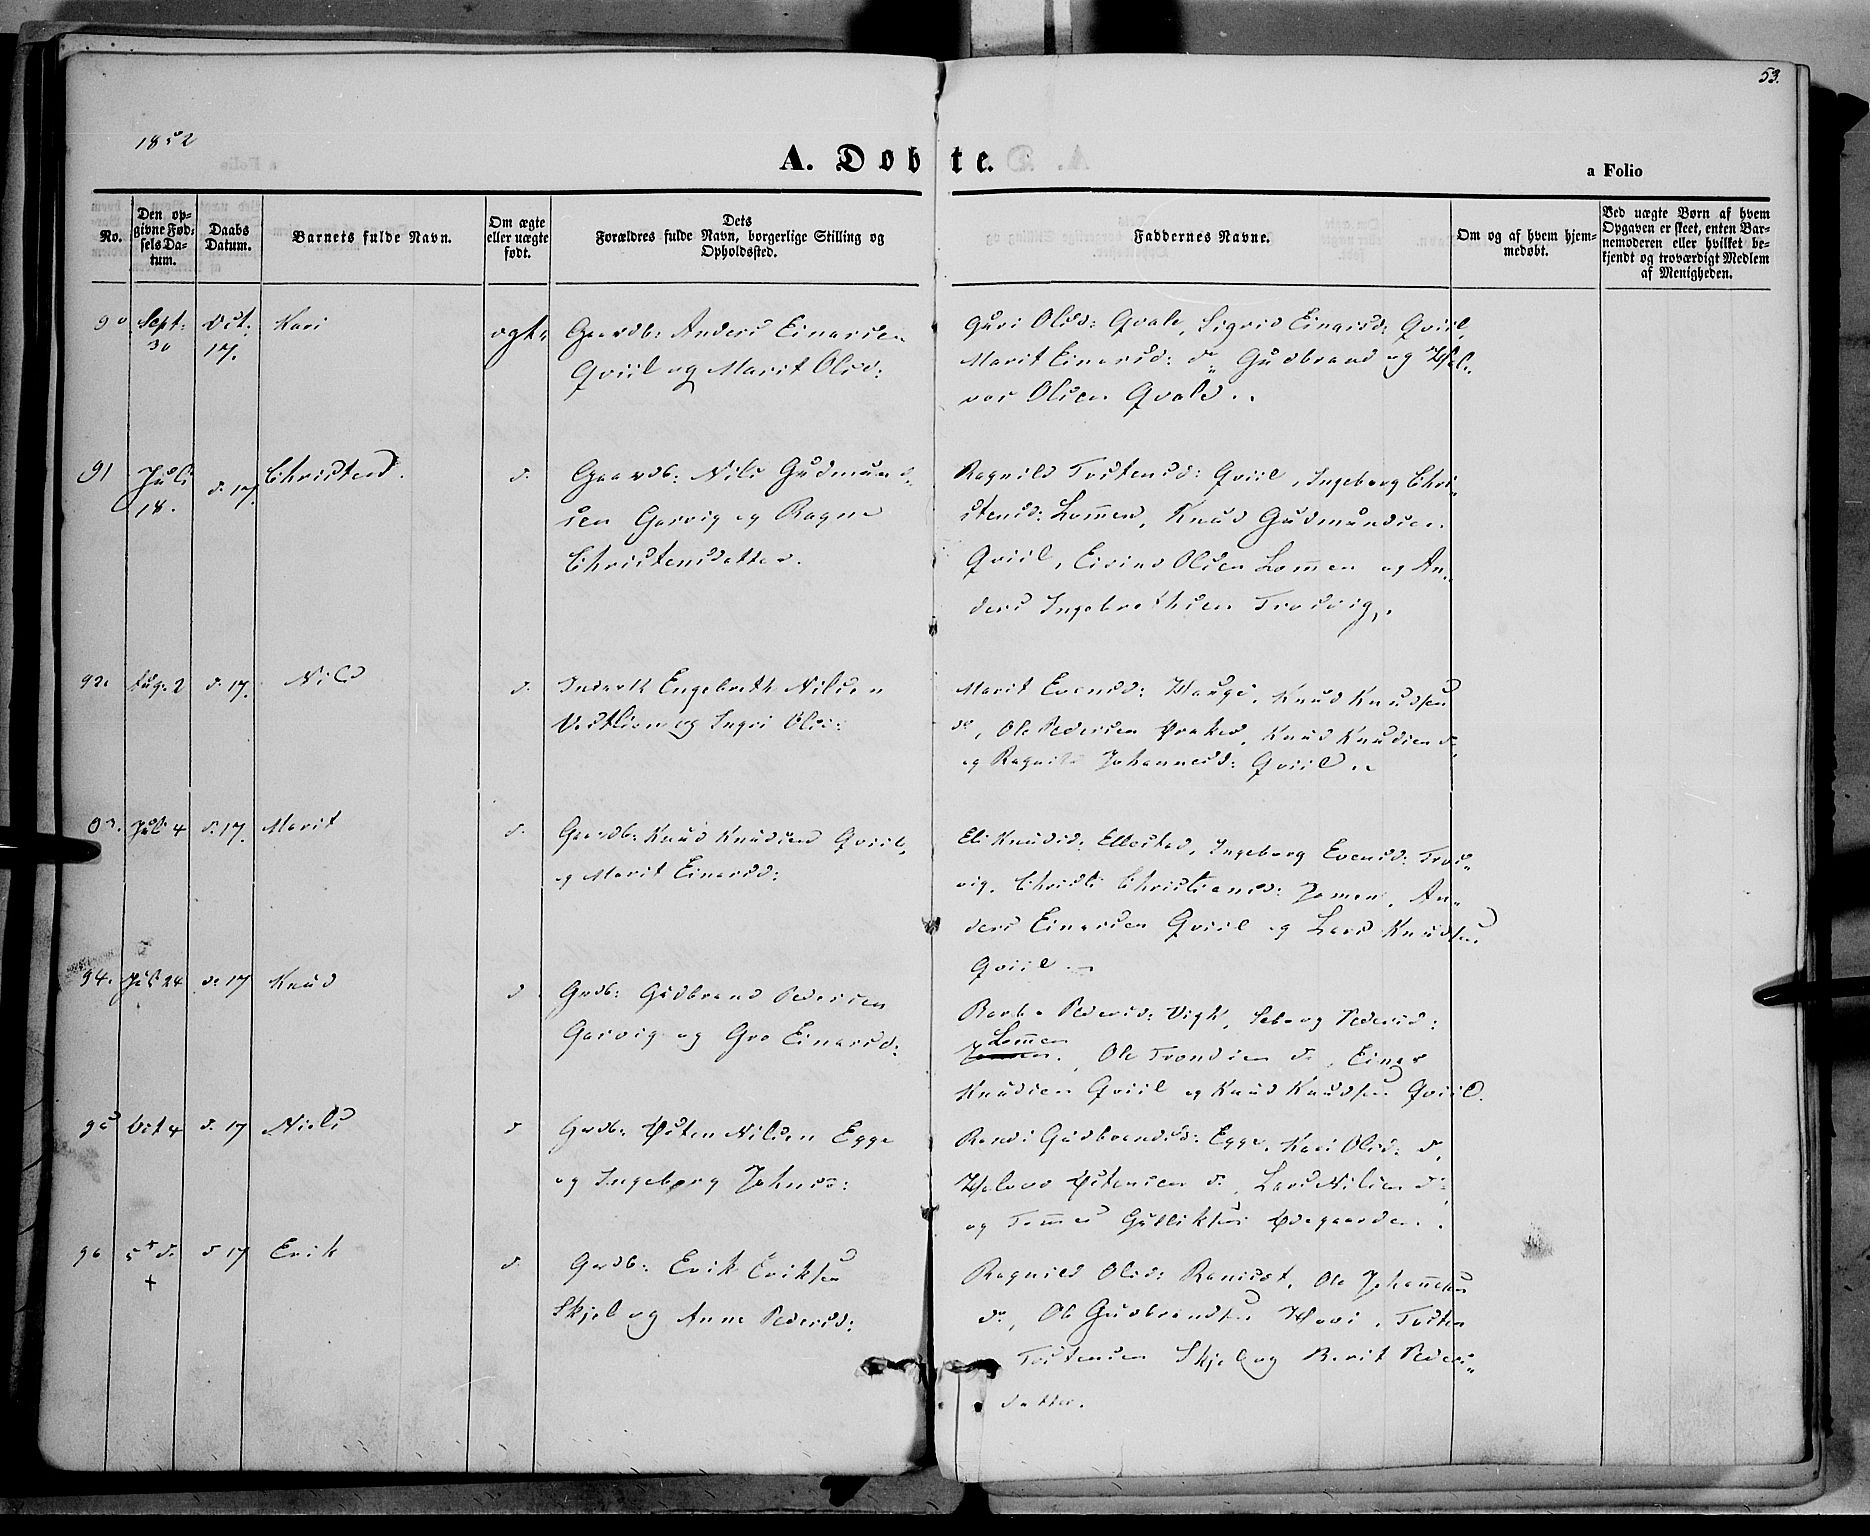 53.
1852
A. Døbte.
a Folio
No.
Den opgivne Fødsels Datum.
Daabs Datum.
Barnets fulde Navn.
Om ægte eller uægte født.
Dets Forældres fulde Navn, borgerlige Stilling og Opholdssted.
Faddernes Navne.
Om og af hvem hjemmedøbt.
Ved uægte Børn af hvem Opgaven er skeet, enten Barnemoderen eller hvilket bekjendt og troværdigt Medlem af Menigheden.
90 Sept: 30 Oct. 17. Kari ægte Gaardb: Anders Einarsen
Qviil og Marit Olsd:
Guri Olsd: Qvale, Sigrid Einarsd: Qviil,
Marit Einarsd: do Gudbrand og Hal-
vor Olsen Qvale.
91 Juli 18. d. 17. Christen d. Gaardb: Nils Gudmund-
sen Garvig og Ragne
Christensdatter.
Ragnild Tostensd: Qviil, Ingeborg Chri-
stensd: Lomen, Knud Gudmundsen
Qviil, Eivind Olsen Lomen og An-
ders Ingebrethsen Trosvig.
92. Aug: 2 d. 17. Nils d. Inderst Engebreth Nilsen
og Ingri Olsd:
Marit Evensd: Hauge, Knud Knudsen
do, Ole Pedersen, Knud Knudsen d.
og Ragnild Johannesd: Qviil.
Juli 4 d. 17. Marit d. Gaardb: Knud Knudsen Qviil,
og Marit Einarsd:
Eli Knudsd: Ellestad, Ingeborg Evensd: Tros-
vig, Christi Christiansd: An-
ders Einarsen Qviil og Lars Knudsen
Qviil.
94. Juli 24 d. 17 Knud d. Grdb: Gudbrand Pedersen
Garvig og Gro Einarsd:
Barbo Pedersd: Vigk, Seborg Pedersd:
Lomen, Ole Trondsen d., Einar
Knudsen Qviil og Knud Knudsen Qviil.
95 Oct 4 d. 17 Niels d Grdb: Østen Nilsen Egge
og Ingeborg Johnsd:
Randi Gudbrandsd: Egge, Kari Olsd: d.
Halvor Østensen d., Lars Nilsen d.
og Tommes Gulliksen Ødegaarden.
96 5 d. d 17 Erik d. Grdb: Erik Eriksen
+
Skjel og Anne Pedersd:
Ragnild Olsd: Ole Johannesen
do, Ole Gudbrandsen Hovi, Tosten
Tostensen Skjel og Berit Peders-
datter.